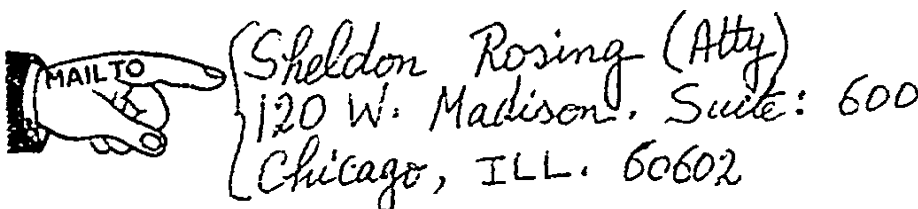 MAIL TO
Sheldon Rosing (Atty)
120 W. Madison. Suite: 600
Chicago, ILL. 60602